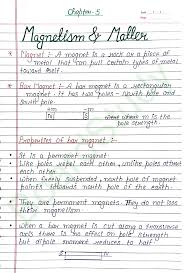 Chapter-5
Magnetism & Matter
* Magnet :- A magnet is a rock or a piece of
metal that can pull certain types of metal
toward itself.
* Bar Magnet :- A bar magnet is a rectangular
magnet. It has two poles - north pole and
South pole.
where m is the
pole strength.
Properties of bar magnet :-
It is a permanent magnet
Like poles repel each other, unlike poles attract
each other
When freely suspended, north pole of magnet
points towards north pole of the earth.
They are permanent magnets. They do not lose
their magnetism
When a bar magnet is cut along a transverse
axis there is no effect on pole strength
but dipole moment reduces to half